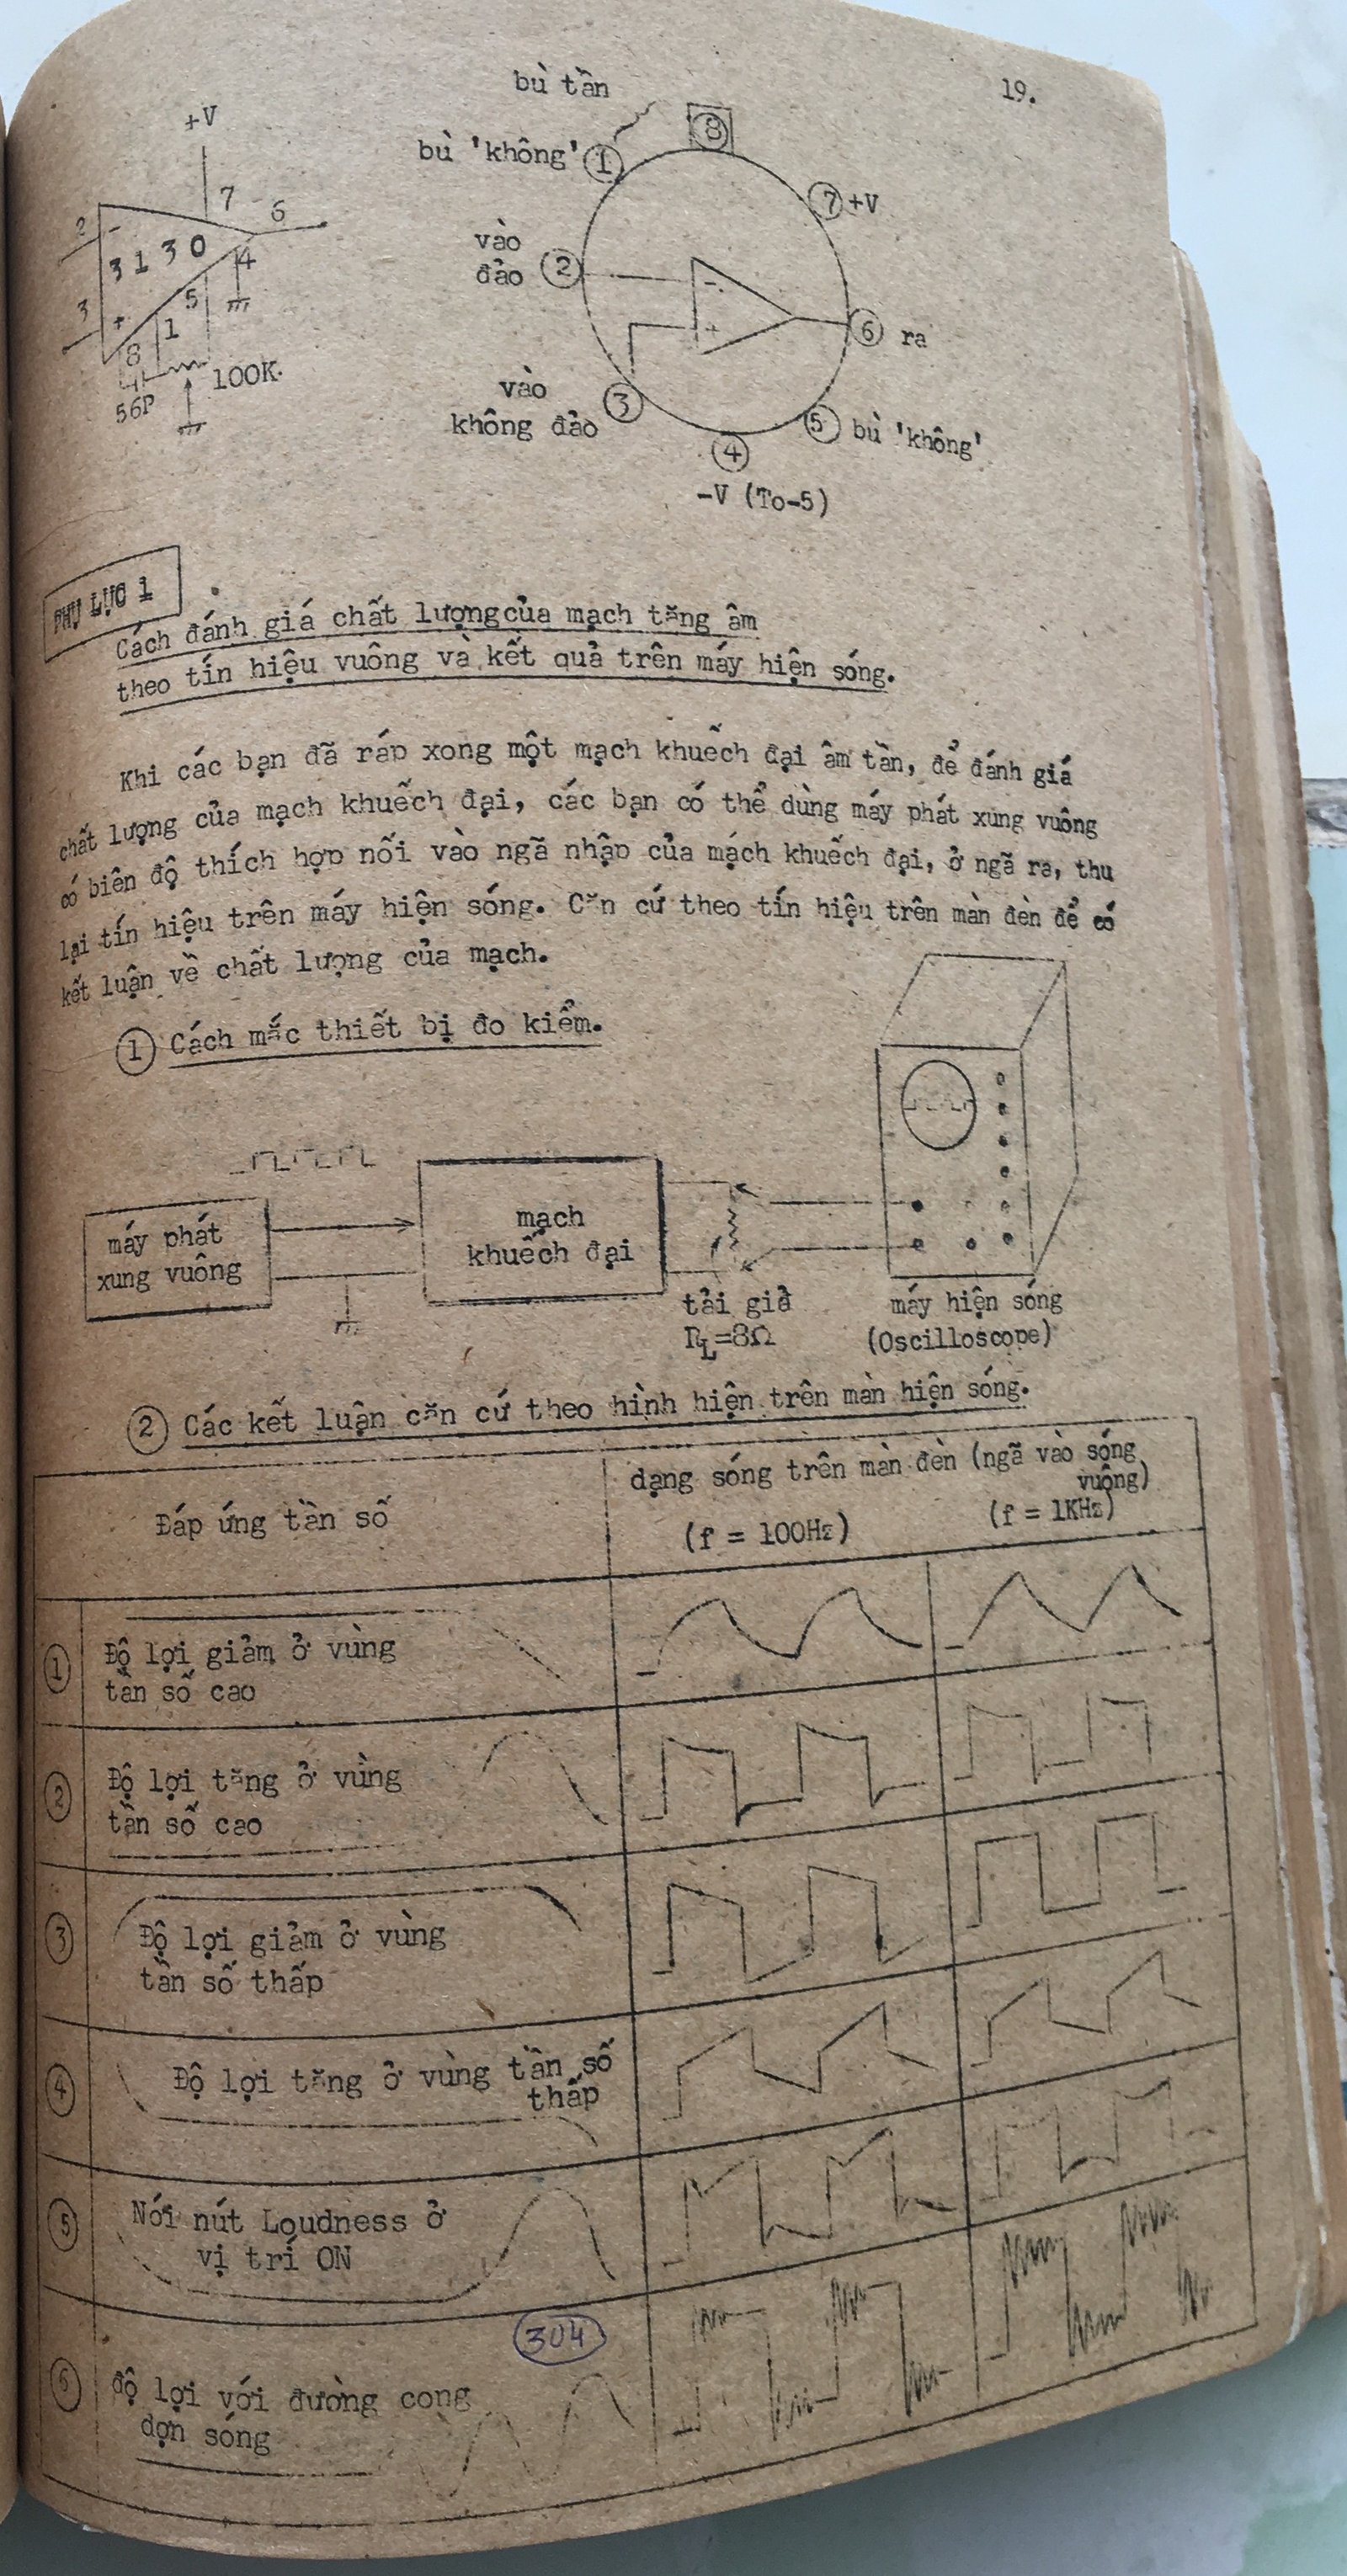 19.
+V
7
6
2
-
3130
4
3
+
5
1
8
56P
100K.
bù tần
bù 'không' 1
8
7 +V
vào
đảo 2
-
+
6 ra
vào
không đảo
3
4
5 bù 'không'
-V (To-5)
PHỤ LỤC 1
Cách đánh giá chất lượng của mạch tăng âm
theo tín hiệu vuông và kết quả trên máy hiện sóng.
Khi các bạn đã ráp xong một mạch khuếch đại âm tần, để đánh giá
chất lượng của mạch khuếch đại, các bạn có thể dùng máy phát xung vuông
có biên độ thích hợp nối vào ngã nhập của mạch khuếch đại, ở ngã ra, thu
lại tín hiệu trên máy hiện sóng. Căn cứ theo tín hiệu trên màn đèn để có
kết luận về chất lượng của mạch.
1 Cách mắc thiết bị đo kiểm.
máy phát
xung vuông
mạch
khuếch đại
tải giả
RL=8Ω
máy hiện sóng
(Oscilloscope)
2 Các kết luận căn cứ theo hình hiện trên màn hiện sóng.
Đáp ứng tần số
dạng sóng trên màn đèn (ngã vào sóng
vuông)
(f = 100Hz)
(f = 1KHz)
1 Độ lợi giảm ở vùng
tần số cao
2 Độ lợi tăng ở vùng
tần số cao
3 Độ lợi giảm ở vùng
tần số thấp
4 Độ lợi tăng ở vùng tần số
thấp
5 Nối nút Loudness ở
vị trí ON
304
6 độ lợi với đường cong
dợn sóng